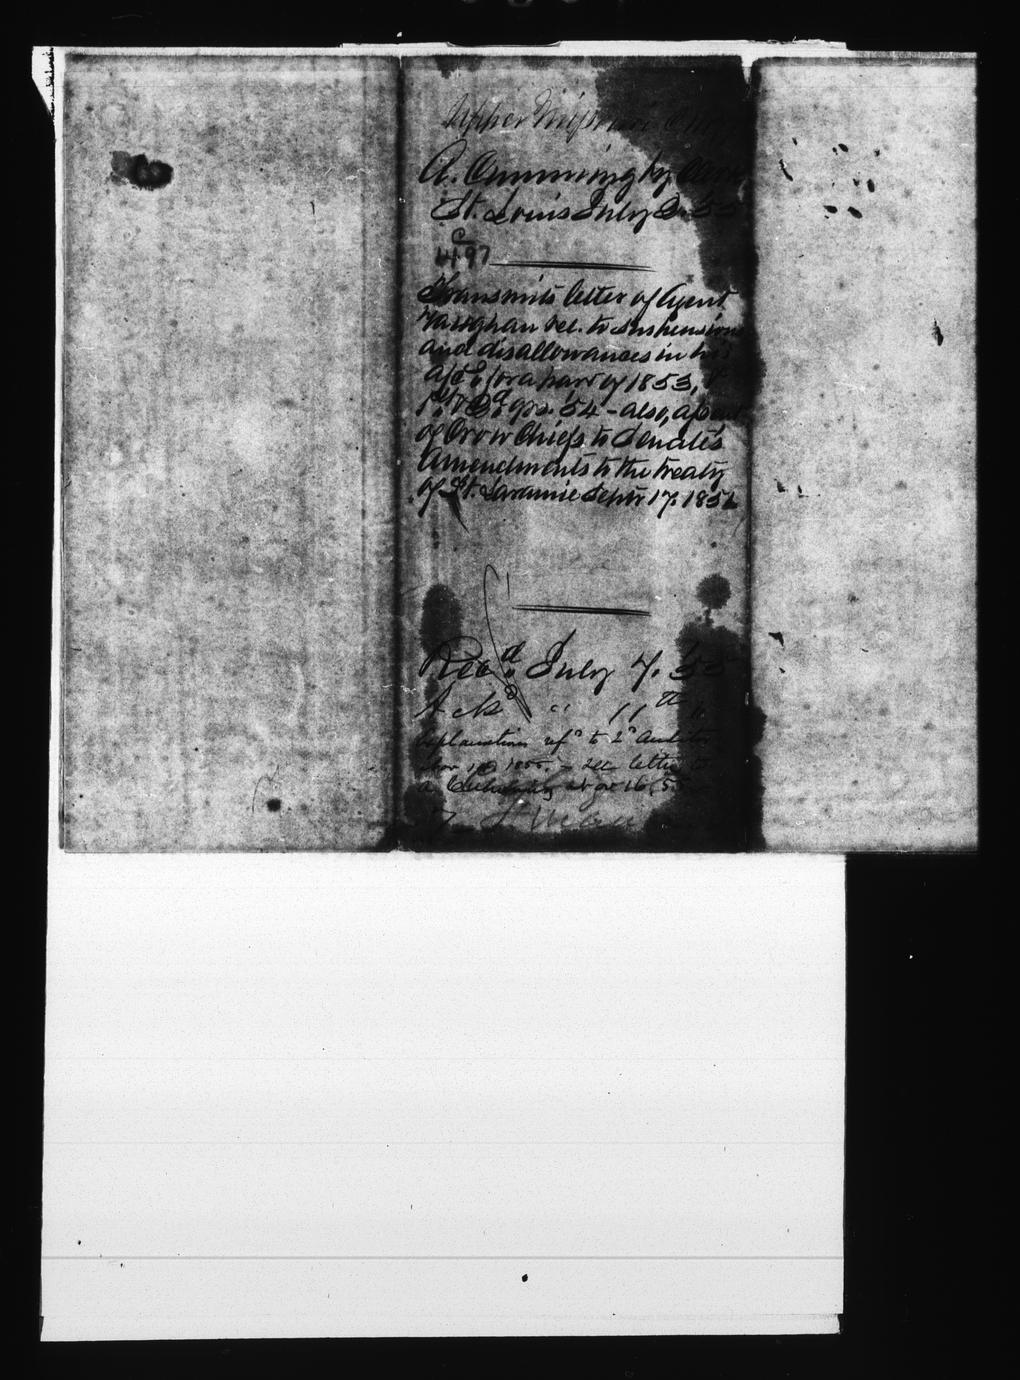 Upper Missouri
A. Cumming by
St. Louis July 2. 55
C
497
Transmits letter of Agent
Vaughan rel. to suspensions
and disallowances in his
a/cs for a part of 1853, &
1st & 2d qrs. 54 - also, assent
of Crow Chiefs to Senate's
Amendments to the treaty
of Ft. Laramie Septr 17. 1851
Recd July 7. 55
Ackd " 11th "
Explanations refd to 2d Auditor
Nov 1855. - See letter to
A. Cumming Nov 16, 55